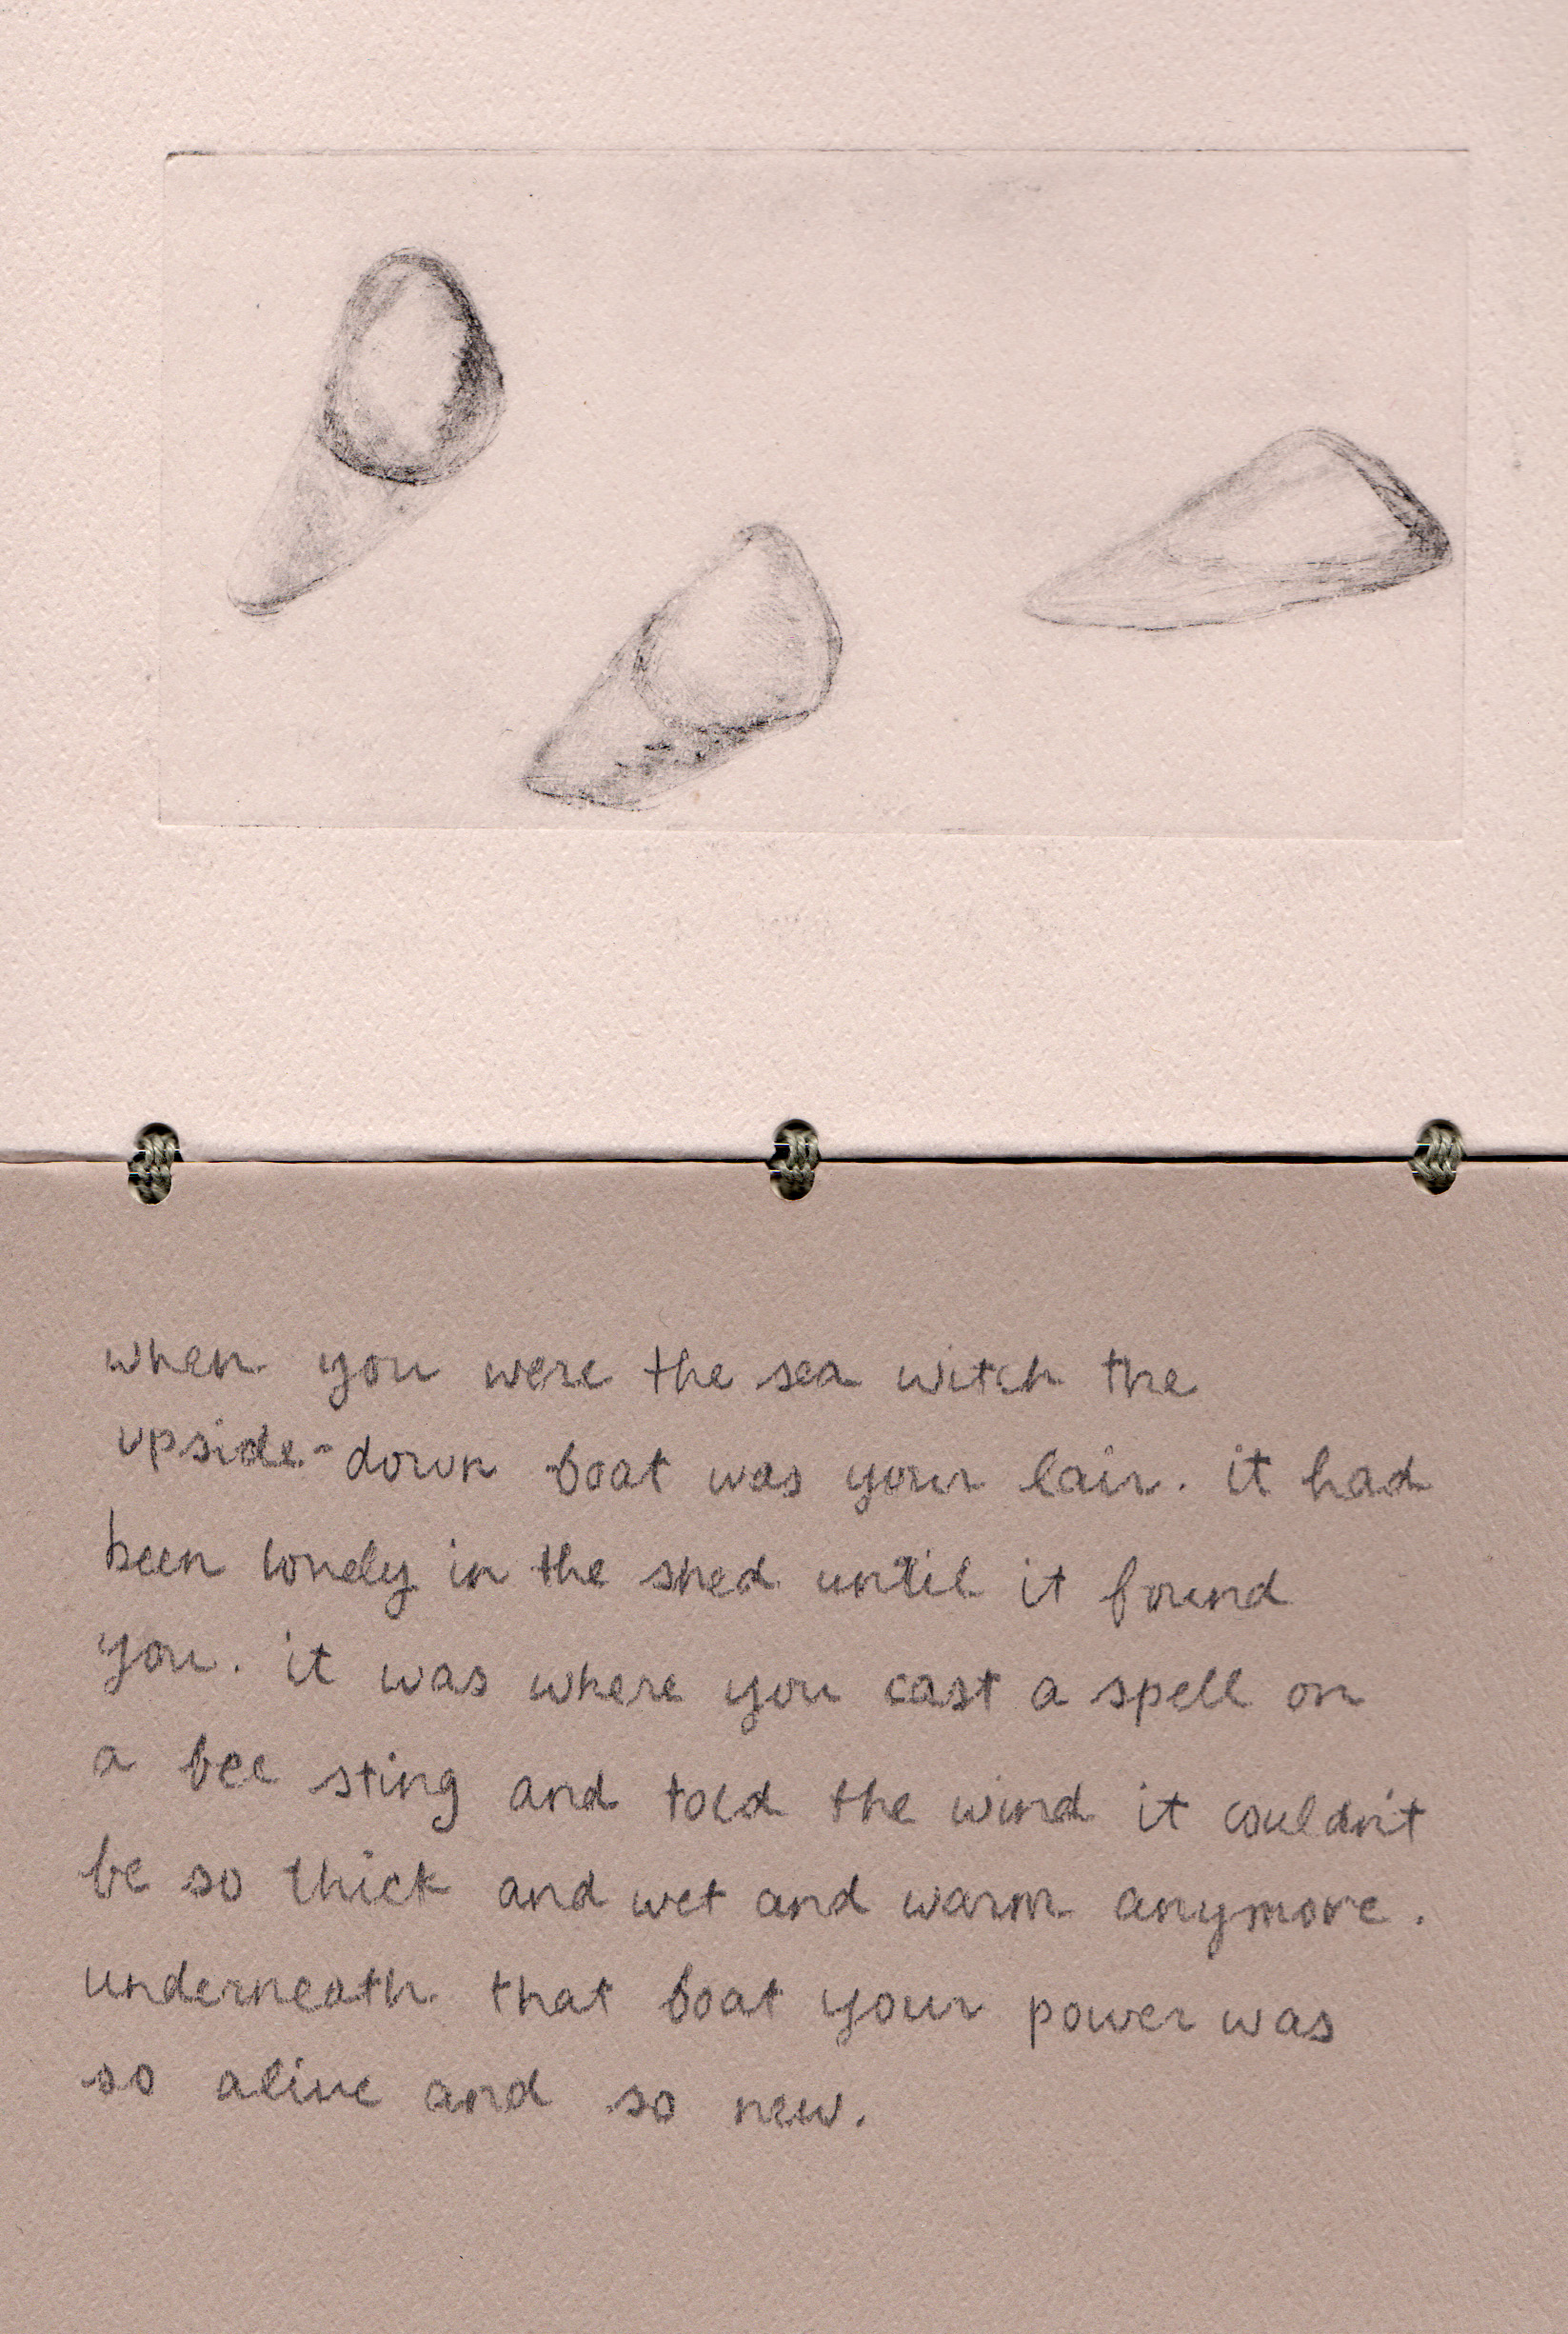 when you were the sea witch the
upside-down boat was your lair. it had
been lonely in the shed until it found
you. it was where you cast a spell on
a bee sting and told the wind it couldn't
be so thick and wet and warm anymore.
underneath that boat your power was
so alive and so new.